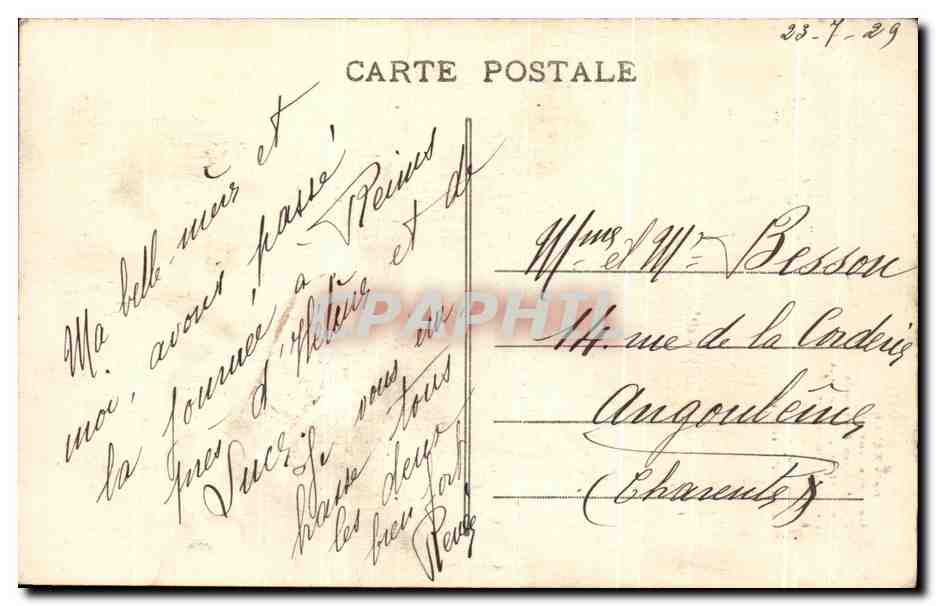 23-7-29
CARTE POSTALE
Ma belle-mère et
moi, avons passé
la journée à Reims
près d'Hélène et de
Lucy. Je vous
tous
les deux
bien fort
René
Mme et Mr Besson
14. rue de la Corderie
Angoulême
(Charente)
EPAPHIL